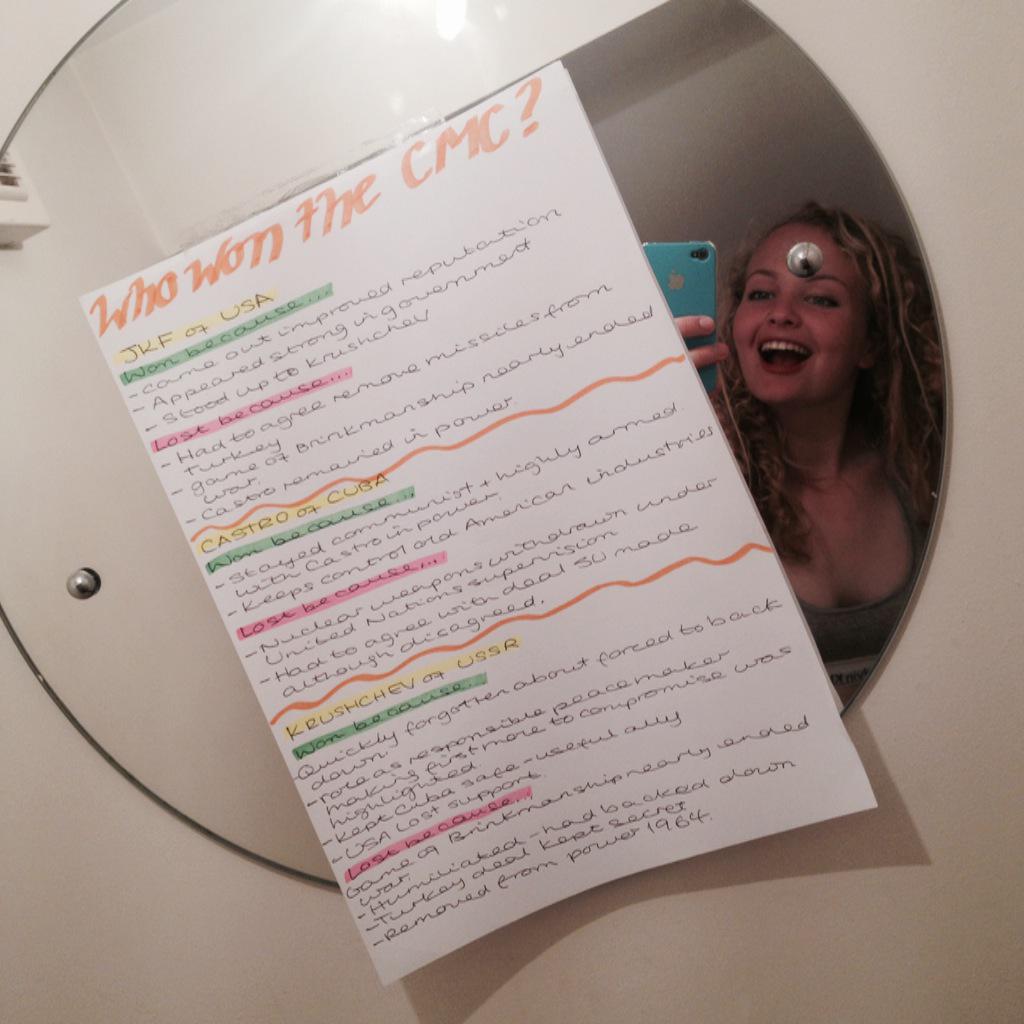 Who won the CMC?
JKF of USA
Won because...
- came out improved reputation
- Appeared strong in government
- Stood up to Krushchev
Lost because...
- Had to agree remove missiles from
Turkey
- game of Brinkmanship nearly ended
war.
- Castro remained in power.
CASTRO of CUBA
Won because...
- Stayed communist + highly armed
with Castro in power
- Keeps control old American industries
Lost because...
- Nuclear weapons withdrawn under
United Nations supervision
- Had to agree with deal SU made
although disagreed.
KRUSHCHEV of USSR
Won because...
- Quickly forgotten about forced to back
down.
- role as responsible peacemaker
making first move to compromise was
highlighted.
- Kept Cuba safe - useful ally
- USA Lost support.
Lost because...
Game of Brinkmanship nearly ended
war.
- Humiliated - had backed down
- Turkey deal kept secret
- Removed from power 1964.